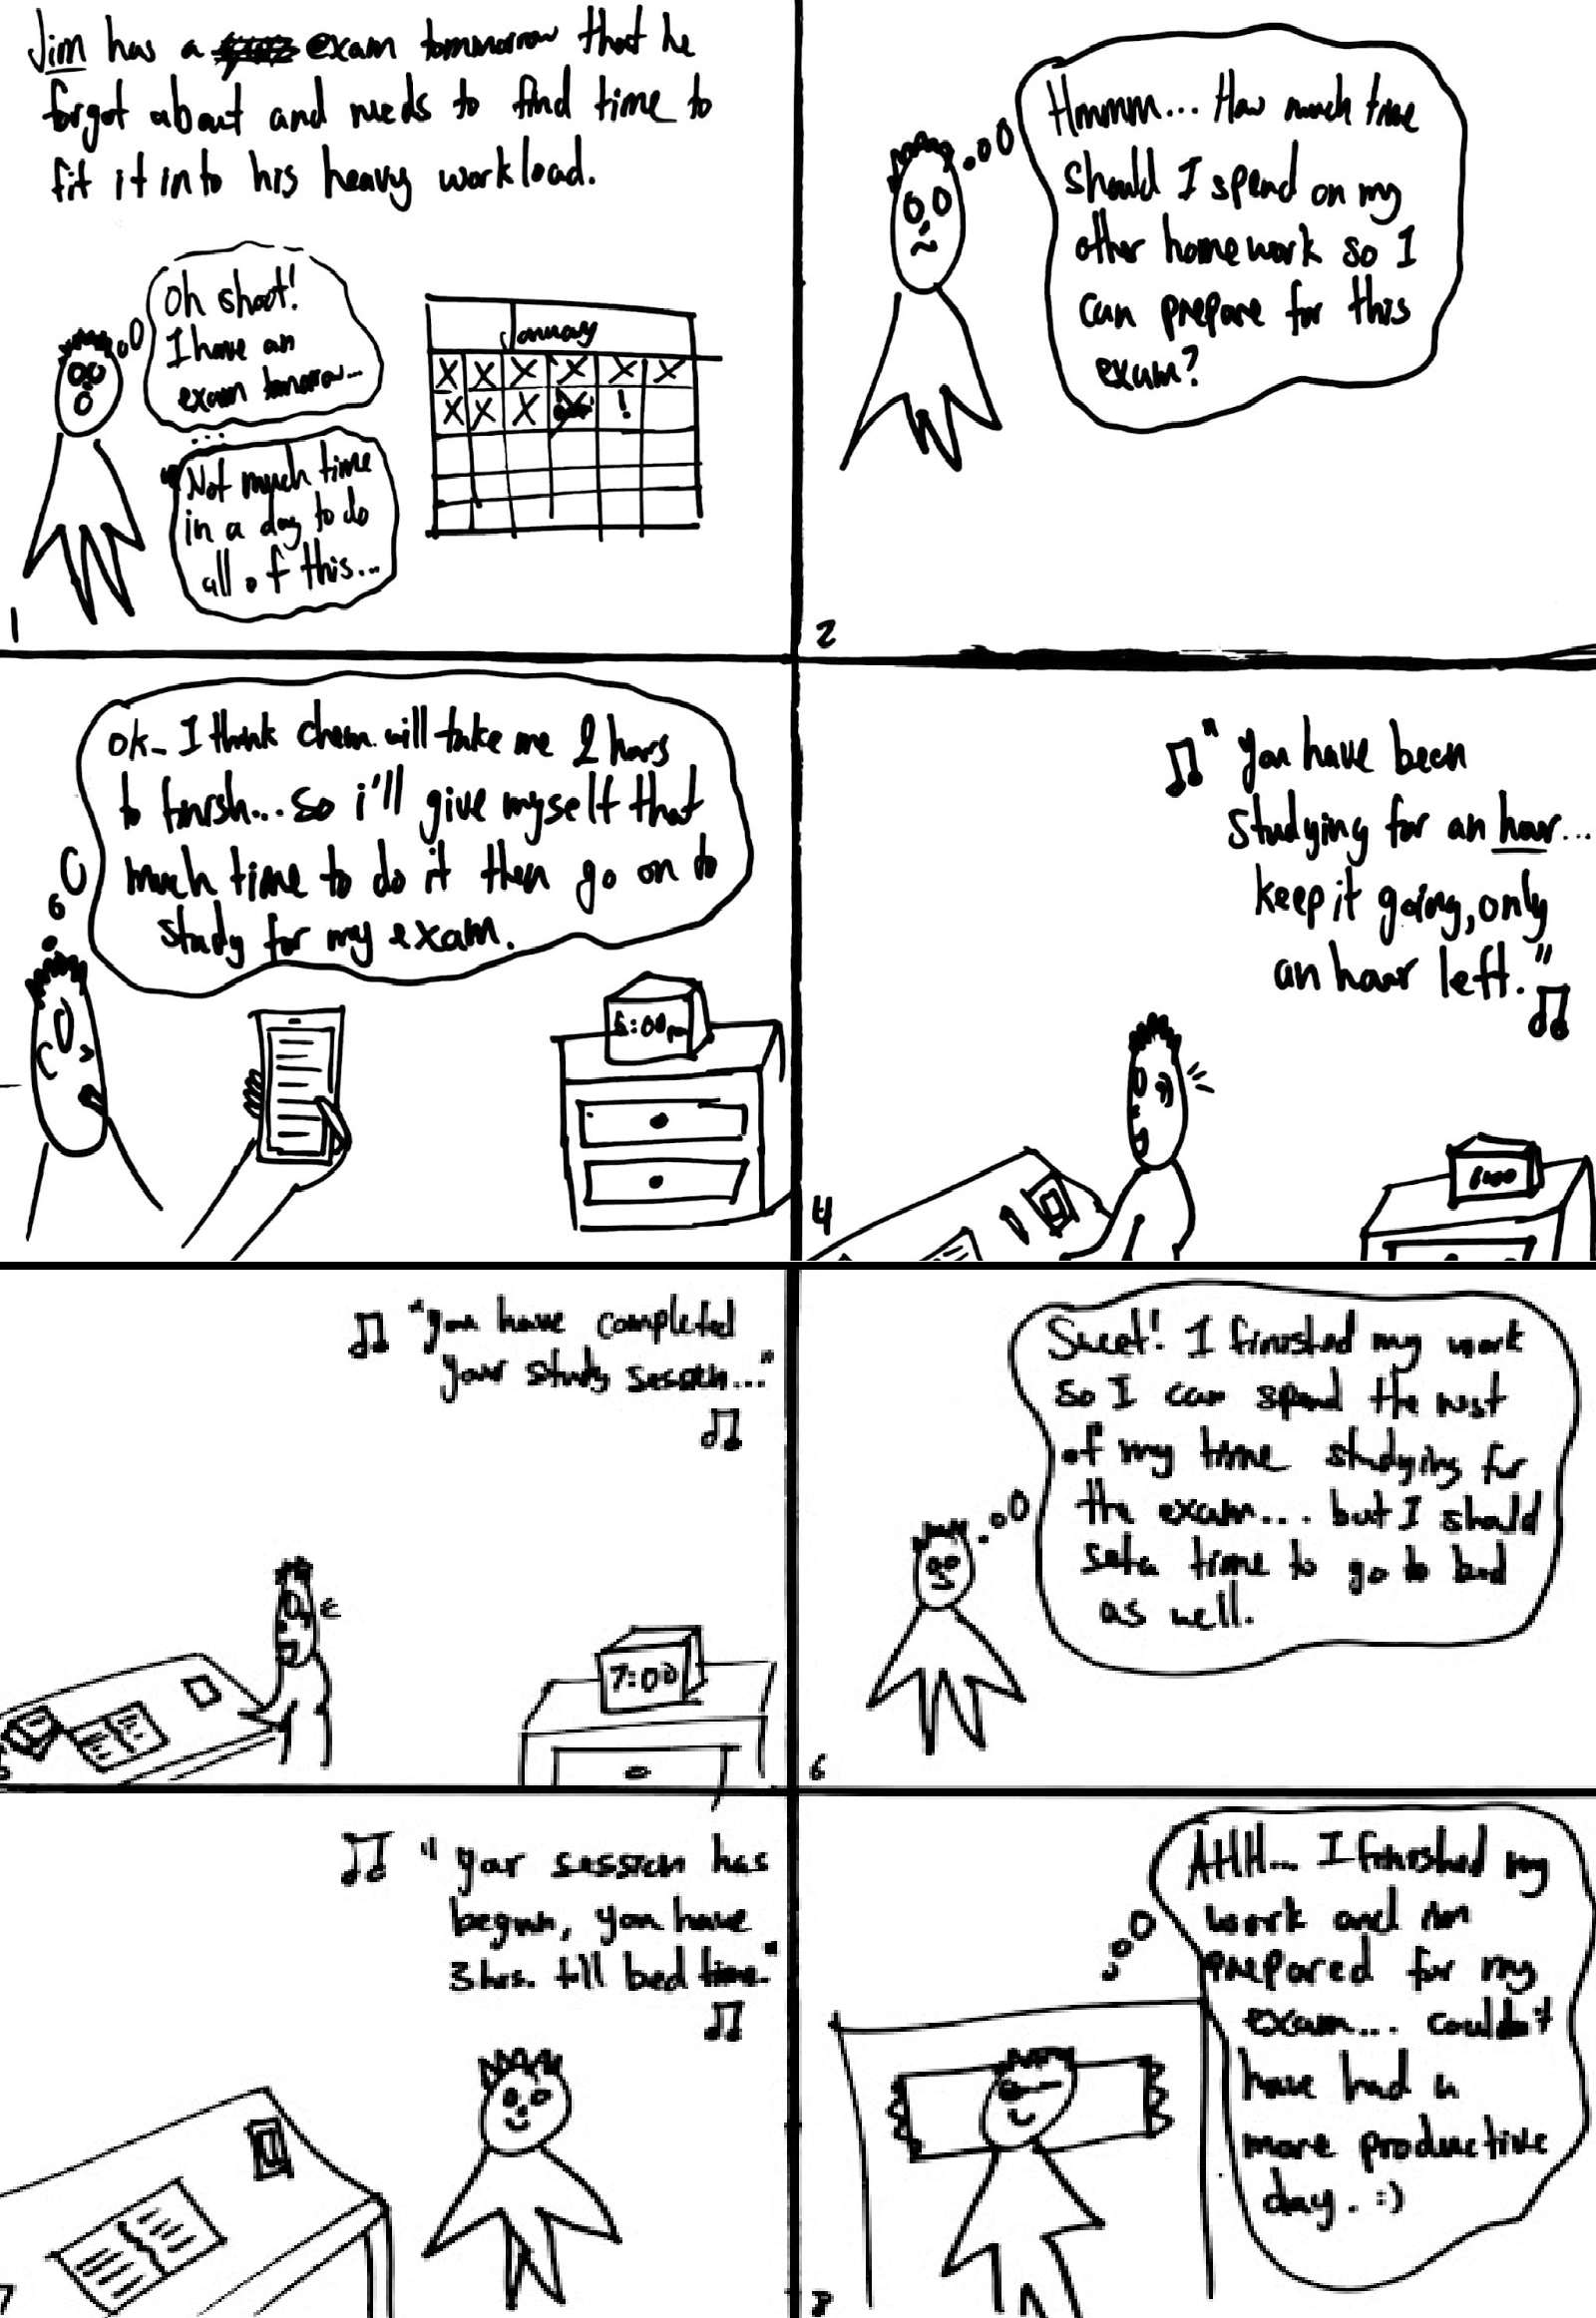 Jim has a exam tommorrow that he
forgot about and needs to find time to
fit it into his heavy workload.
Oh shoot!
I have an
exam tomorrow...
...
Not much time
in a day to do
all of this...
January
X X X X X X
X X X X !
1
Hmmm... How much time
should I spend on my
other homework so I
can prepare for this
exam?
2
Ok- I think chem. will take me 2 hours
to finish... So i'll give myself that
much time to do it then go on to
study for my exam.
:00pm
"You have been
studying for an hour...
keep it going, only
an hour left."
6:00
4
"You have completed
your study session..."
7:00
Sweet! I finished my work
so I can spend the rest
of my time studying for
the exam... but I should
set a time to go to bed
as well.
6
"your session has
begun, you have
3 hrs. till bed time."
7
AHH... I finished my
work and im
prepared for my
exam... couldn't
have had a
more productive
day. :)
8